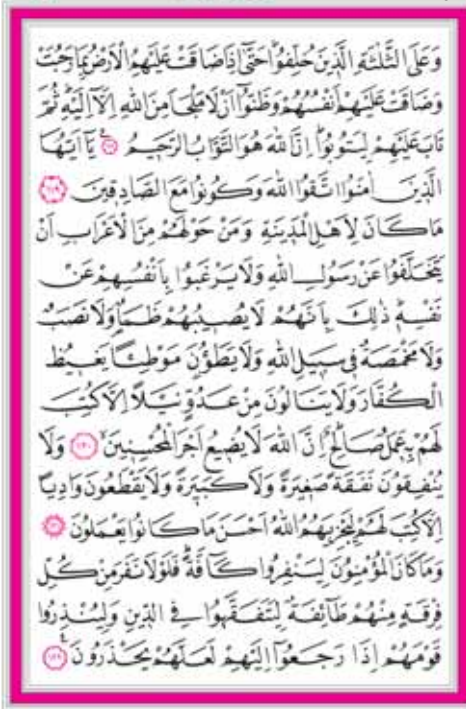 وَعَلَى الثَّلٰثَةِ الَّذ۪ينَ خُلِّفُواۜ حَتّٰٓى اِذَا ضَاقَتْ عَلَيْهِمُ الْاَرْضُ بِمَا رَحُبَتْ
وَضَاقَتْ عَلَيْهِمْ اَنْفُسُهُمْ وَظَنُّٓوا اَنْ لَا مَلْجَاَ مِنَ اللّٰهِ اِلَّٓا اِلَيْهِۜ ثُمَّ
تَابَ عَلَيْهِمْ لِيَتُوبُواۜ اِنَّ اللّٰهَ هُوَ التَّوَّابُ الرَّح۪يمُ ﴿١١٨﴾ يَٓا اَيُّهَا
الَّذ۪ينَ اٰمَنُوا اتَّقُوا اللّٰهَ وَكُونُوا مَعَ الصَّادِق۪ينَ ﴿١١٩﴾
مَا كَانَ لِاَهْلِ الْمَد۪ينَةِ وَمَنْ حَوْلَهُمْ مِنَ الْاَعْرَابِ اَنْ
يَتَخَلَّفُوا عَنْ رَسُولِ اللّٰهِ وَلَا يَرْغَبُوا بِاَنْفُسِهِمْ عَنْ
نَفْسِه۪ۜ ذٰلِكَ بِاَنَّهُمْ لَا يُص۪يبُهُمْ ظَمَاٌ وَلَا نَصَبٌ
وَلَا مَخْمَصَةٌ ف۪ي سَب۪يلِ اللّٰهِ وَلَا يَطَؤُ۫نَ مَوْطِئًا يَغ۪يظُ
الْكُفَّارَ وَلَا يَنَالُونَ مِنْ عَدُوٍّ نَيْلًا اِلَّا كُتِبَ
لَهُمْ بِه۪ عَمَلٌ صَالِحٌۜ اِنَّ اللّٰهَ لَا يُض۪يعُ اَجْرَ الْمُحْسِن۪ينَۙ ﴿١٢٠﴾ وَلَا
يُنْفِقُونَ نَفَقَةً صَغ۪يرَةً وَلَا كَب۪يرَةً وَلَا يَقْطَعُونَ وَادِيًا
اِلَّا كُتِبَ لَهُمْ لِيَجْزِيَهُمُ اللّٰهُ اَحْسَنَ مَا كَانُوا يَعْمَلُونَ ﴿١٢١﴾
وَمَا كَانَ الْمُؤْمِنُونَ لِيَنْفِرُوا كَٓافَّةًۜ فَلَوْلَا نَفَرَ مِنْ كُلِّ
فِرْقَةٍ مِنْهُمْ طَٓائِفَةٌ لِيَتَفَقَّهُوا فِي الدّ۪ينِ وَلِيُنْذِرُوا
قَوْمَهُمْ اِذَا رَجَعُٓوا اِلَيْهِمْ لَعَلَّهُمْ يَحْذَرُونَ۟ ﴿١٢٢﴾